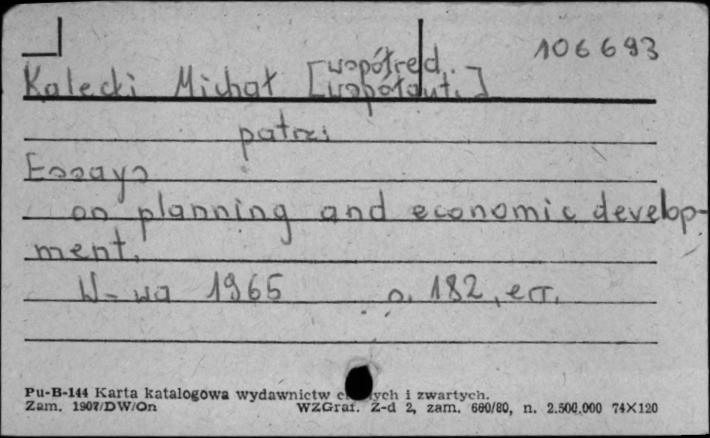 106693
Kalecki Michał [współred.
współaut.]
patrz:
Essays
on planning and economic develop-
ment.
W-wa 1965 s. 182, err.
Pu-B-144 Karta katalogowa wydawnictw i zwartych.
Zam. 1907/DW/On WZGraf. Z-d 2, zam. 660/80, n. 2.500.000 74X120